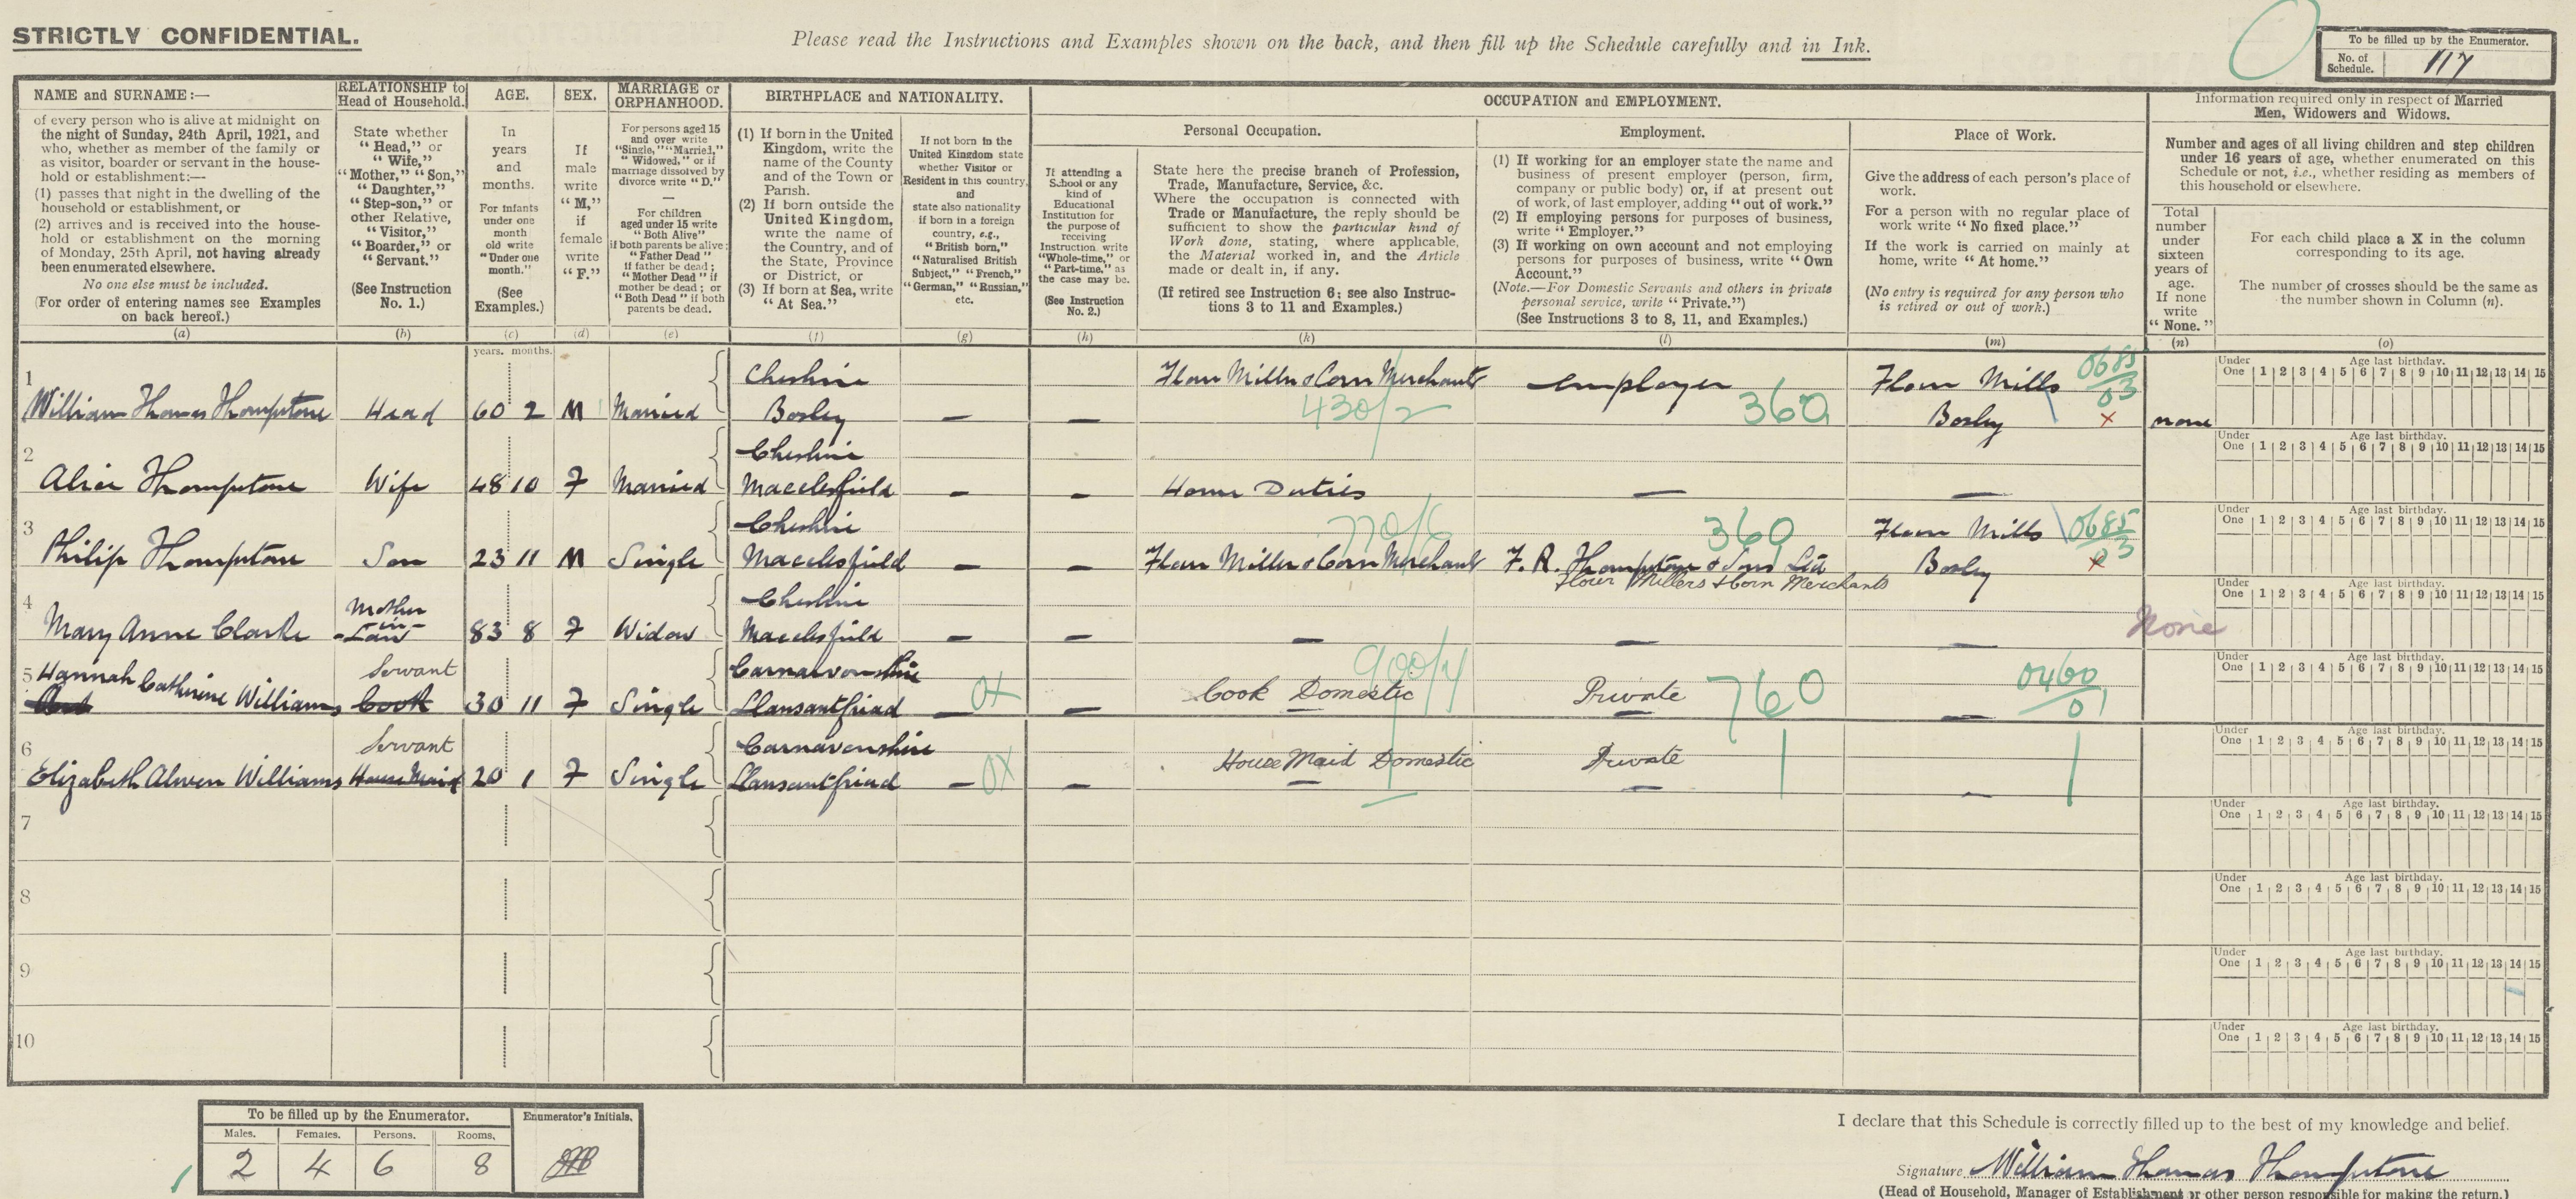 STRICTLY CONFIDENTIAL.
Please read the Instructions and Examples shown on the back, and then fill up the Schedule carefully and in Ink.
To be filled up by the Enumerator.
No. of Schedule. 117
NAME and SURNAME :—
of every person who is alive at midnight on
the night of Sunday, 24th April, 1921, and
who, whether as member of the family or
as visitor, boarder or servant in the house-
hold or establishment:—
(1) passes that night in the dwelling of the
household or establishment, or
(2) arrives and is received into the house-
hold or establishment on the morning
of Monday, 25th April, not having already
been enumerated elsewhere.
No one else must be included.
(For order of entering names see Examples
on back hereof.)
(a)
RELATIONSHIP to
Head of Household.
State whether
"Head," or
"Wife,"
"Mother," "Son,"
"Daughter,"
"Step-son," or
other Relative,
"Visitor,"
"Boarder," or
"Servant."
(See Instruction
No. 1.)
(b)
AGE.
In
years
and
months.
For infants
under one
month
old write
"Under one
month."
(See
Examples.)
(c)
SEX.
If
male
write
"M,"
if
female
write
"F."
(d)
MARRIAGE or
ORPHANHOOD.
For persons aged 15
and over write
"Single," "Married,"
"Widowed," or if
marriage dissolved by
divorce write "D."
—
For children
aged under 15 write
"Both Alive"
if both parents be alive;
"Father Dead"
if father be dead;
"Mother Dead" if
mother be dead; or
"Both Dead" if both
parents be dead.
(e)
BIRTHPLACE and NATIONALITY.
(1) If born in the United
Kingdom, write the
name of the County
and of the Town or
Parish.
(2) If born outside the
United Kingdom,
write the name of
the Country, and of
the State, Province
or District, or
(3) If born at Sea, write
"At Sea."
(f)
If not born in the
United Kingdom state
whether Visitor or
Resident in this country,
and
state also nationality
if born in a foreign
country, e.g.,
"British born,"
"Naturalised British
Subject," "French,"
"German," "Russian,"
etc.
(g)
OCCUPATION and EMPLOYMENT.
If attending a
School or any
kind of
Educational
Institution for
the purpose of
receiving
Instruction write
"Whole-time," or
"Part-time," as
the case may be.
(See Instruction
No. 2.)
(h)
Personal Occupation.
State here the precise branch of Profession,
Trade, Manufacture, Service, &c.
Where the occupation is connected with
Trade or Manufacture, the reply should be
sufficient to show the particular kind of
Work done, stating, where applicable,
the Material worked in, and the Article
made or dealt in, if any.
(If retired see Instruction 6; see also Instruc-
tions 3 to 11 and Examples.)
(k)
Employment.
(1) If working for an employer state the name and
business of present employer (person, firm,
company or public body) or, if at present out
of work, of last employer, adding "out of work."
(2) If employing persons for purposes of business,
write "Employer."
(3) If working on own account and not employing
persons for purposes of business, write "Own
Account."
(Note.—For Domestic Servants and others in private
personal service, write "Private.")
(See Instructions 3 to 8, 11, and Examples.)
(l)
Place of Work.
Give the address of each person's place of
work.
For a person with no regular place of
work write "No fixed place."
If the work is carried on mainly at
home, write "At home."
(No entry is required for any person who
is retired or out of work.)
(m)
Information required only in respect of Married
Men, Widowers and Widows.
Number and ages of all living children and step children
under 16 years of age, whether enumerated on this
Schedule or not, i.e., whether residing as members of
this household or elsewhere.
Total
number
under
sixteen
years of
age.
If none
write
"None."
(n)
For each child place a X in the column
corresponding to its age.
The number of crosses should be the same as
the number shown in Column (n).
(o)
years. months.
Under One Age last birthday. 1 2 3 4 5 6 7 8 9 10 11 12 13 14 15
1 William Thomas Thompstone Head 60 2 M Married Cheshire Bosley — — Flour Miller & Corn Merchant 430/2 employer 360 Flour Mills Bosley 0685/03 × none
Under One Age last birthday. 1 2 3 4 5 6 7 8 9 10 11 12 13 14 15
2 Alice Thompstone Wife 48 10 F Married Cheshire Macclesfield — — Home Duties — —
Under One Age last birthday. 1 2 3 4 5 6 7 8 9 10 11 12 13 14 15
3 Philip Thompstone Son 23 11 M Single Cheshire Macclesfield — — Flour Miller & Corn Merchant F. R. Thompstone & Sons Ltd Flour Millers & Corn Merchants 360 Flour Mills Bosley 0685/03 ×
Under One Age last birthday. 1 2 3 4 5 6 7 8 9 10 11 12 13 14 15
4 Mary Anne Clarke Mother in Law 83 8 F Widow Cheshire Macclesfield — — — — — None
Under One Age last birthday. 1 2 3 4 5 6 7 8 9 10 11 12 13 14 15
5 Hannah Catherine Williams Servant Cook 30 11 F Single Carnarvonshire Llansantfriad — OX — Cook Domestic 900/4 Private 760 — 0460/01
Under One Age last birthday. 1 2 3 4 5 6 7 8 9 10 11 12 13 14 15
6 Elizabeth Alwen Williams Servant House Maid 20 1 F Single Carnavonshire Llansantfriad — OX — House Maid Domestic Private —
Under One Age last birthday. 1 2 3 4 5 6 7 8 9 10 11 12 13 14 15
7
Under One Age last birthday. 1 2 3 4 5 6 7 8 9 10 11 12 13 14 15
8
Under One Age last birthday. 1 2 3 4 5 6 7 8 9 10 11 12 13 14 15
9
Under One Age last birthday. 1 2 3 4 5 6 7 8 9 10 11 12 13 14 15
10
To be filled up by the Enumerator.
Males. Females. Persons. Rooms.
2 4 6 8
Enumerator's Initials.
I declare that this Schedule is correctly filled up to the best of my knowledge and belief.
Signature William Thomas Thompstone
(Head of Household, Manager of Establishment or other person responsible for making the return.)